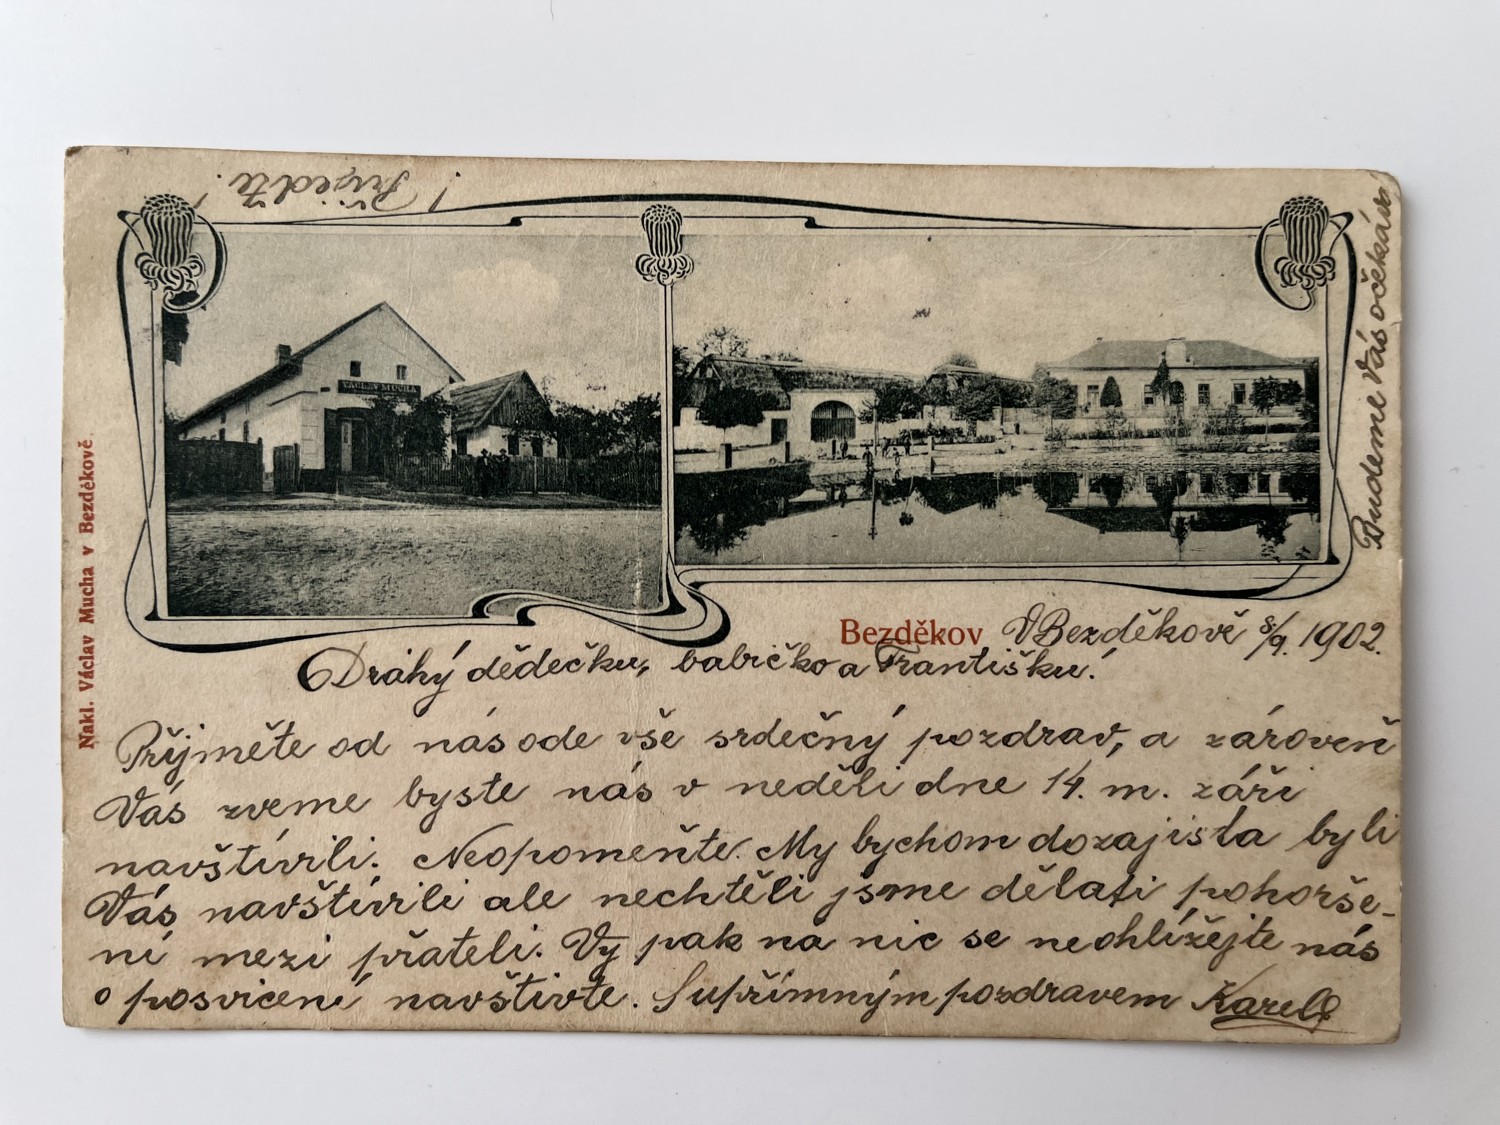 ! Přijeďte!
VÁCLAV MUCHA
Nakl. Václav Mucha v Bezděkově.
Budeme Vás očekávat
Bezděkov V Bezděkově 8/9. 1902.
Drahý dědečku, babičko a Františku!
Přijměte od nás ode vše srdečný pozdrav, a zároveň
Vás zveme byste nás v neděli dne 14. m. září
navštívili. Neopomeňte. My bychom dozajista byli
Vás navštívili ale nechtěli jsme dělati pohorše-
ní mezi přáteli. Vy pak na nic se neohlížejte nás
o posvícení navštivte. S upřímným pozdravem Karel